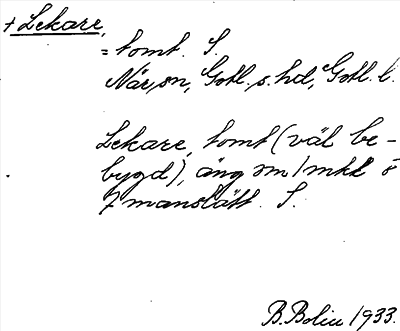 + Lekare,
= tomt. S.
När, sn, Gotl. s. hd, Gotl. l.
Lekare, tomt (väl be-
bygd), äng om 1 mkl ö
7 manslätt. S.
B. Bolin 1933.